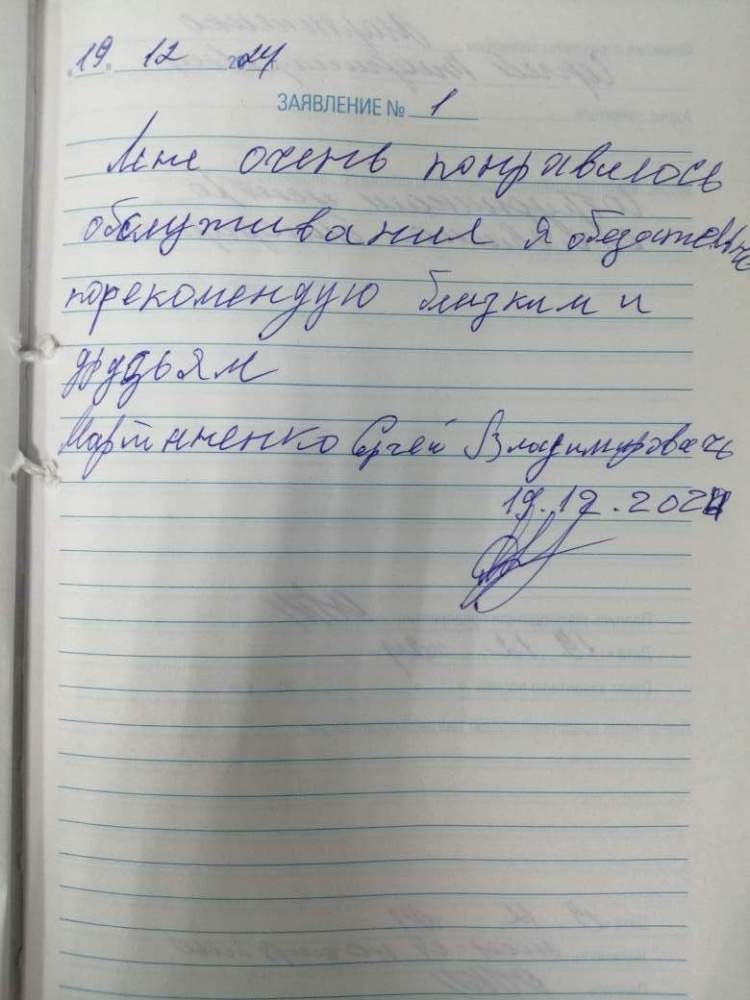 19. 12 2024
ЗАЯВЛЕНИЕ № 1
Мне очень понравилось
обслуживания я обезательно
порекомендую близким и
друзьям
Мартыненко Сергей Владимировачь
19.12.2024